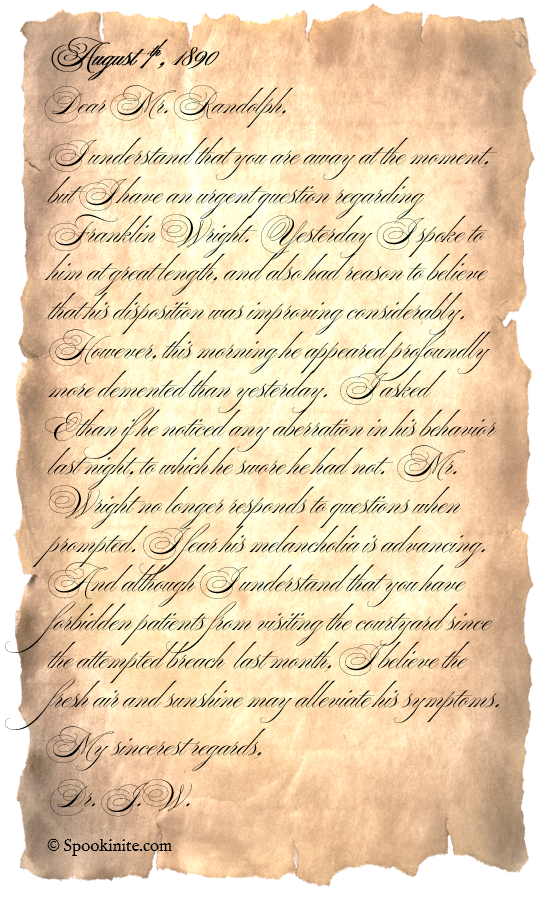 August 1th, 1890
Dear Mr. Randolph,
I understand that you are away at the moment,
but I have an urgent question regarding
Franklin Wright. Yesterday I spoke to
him at great length, and also had reason to believe
that his disposition was improving considerably.
However, this morning he appeared profoundly
more demented than yesterday. I asked
Ethan if he noticed any aberration in his behavior
last night, to which he swore he had not. Mr.
Wright no longer responds to questions when
prompted. I fear his melancholia is advancing.
And although I understand that you have
forbidden patients from visiting the courtyard since
the attempted breach last month, I believe the
fresh air and sunshine may alleviate his symptoms.
My sincerest regards,
Dr. J.W.
© Spookinite.com